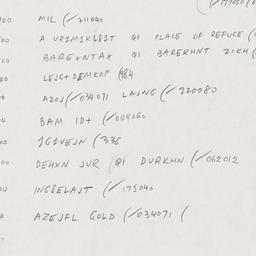 00 MIL (✓211040
00 A UR1M1KL81T @1 PLACE OF REFUGE (
00 BAREXNTAX @1 BAREKHNT ZIKH (
00 LEJG+DEMKOP (✓84
00 AZOJ(✓034071 LAJNG (✓220080
BAM ID+ (✓009060
00 JG1VEJN (✓335
00 DEHXN JUR @1 DURKHN (✓062012
00 INGBELAJT (✓175040
AZEJFL GOLD (✓034071 (